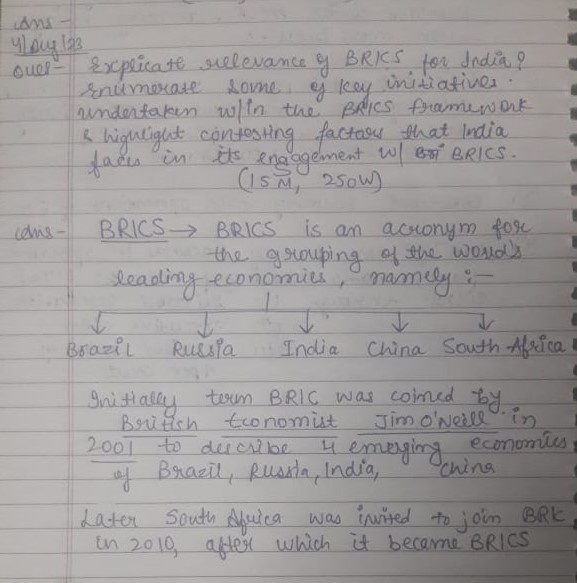 Ans -
4/Aug/23
Ques- Explicate relevance of BRICS for India?
Enumerate some of key initiatives
undertaken w/in the BRICS framework
& highlight contesting factors that India
faces in its engagement w/ BRICS.
(15M, 250W)
Ans - BRICS → BRICS is an acronym for
the grouping of the world's
leading economies, namely :-
Brazil Russia India China South Africa
Initially term BRIC was coined by
British Economist Jim O'Neill in
2001 to describe 4 emerging economies
of Brazil, Russia, India, China
Later South Africa was invited to join BRIC
in 2010, after which it became BRICS